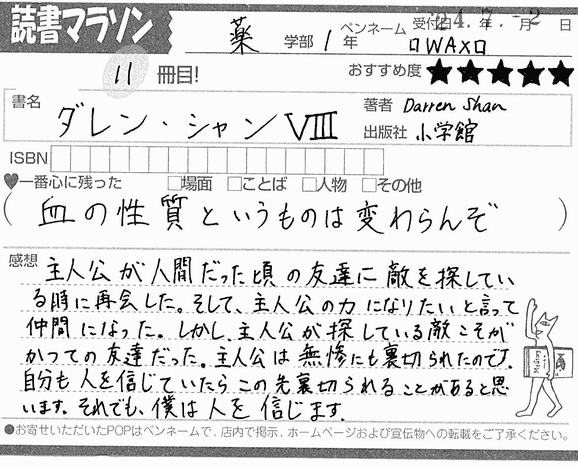 読書マラソン
薬 学部 1 年 ペンネーム □WAX□
受付日 '24. 7. -2 年 月 日
11 冊目! おすすめ度 ★★★★★
書名 ダレン・シャンⅧ
著者 Darren Shan
出版社 小学館
ISBN
♥一番心に残った □場面 □ことば □人物 □その他
(血の性質というものは変わらんぞ)
感想 主人公が人間だった頃の友達に敵を探してい
る時に再会した。そして、主人公の力になりたいと言って
仲間になった。しかし、主人公が探している敵こそが
かつての友達だった。主人公は無惨にも裏切られたのです。
自分も人を信じていたらこの先裏切られることがあると思
います。それでも、僕は人を信じます。
●お寄せいただいたPOPはペンネームで、店内で掲示、ホームページおよび宣伝物への転載をご了承ください。